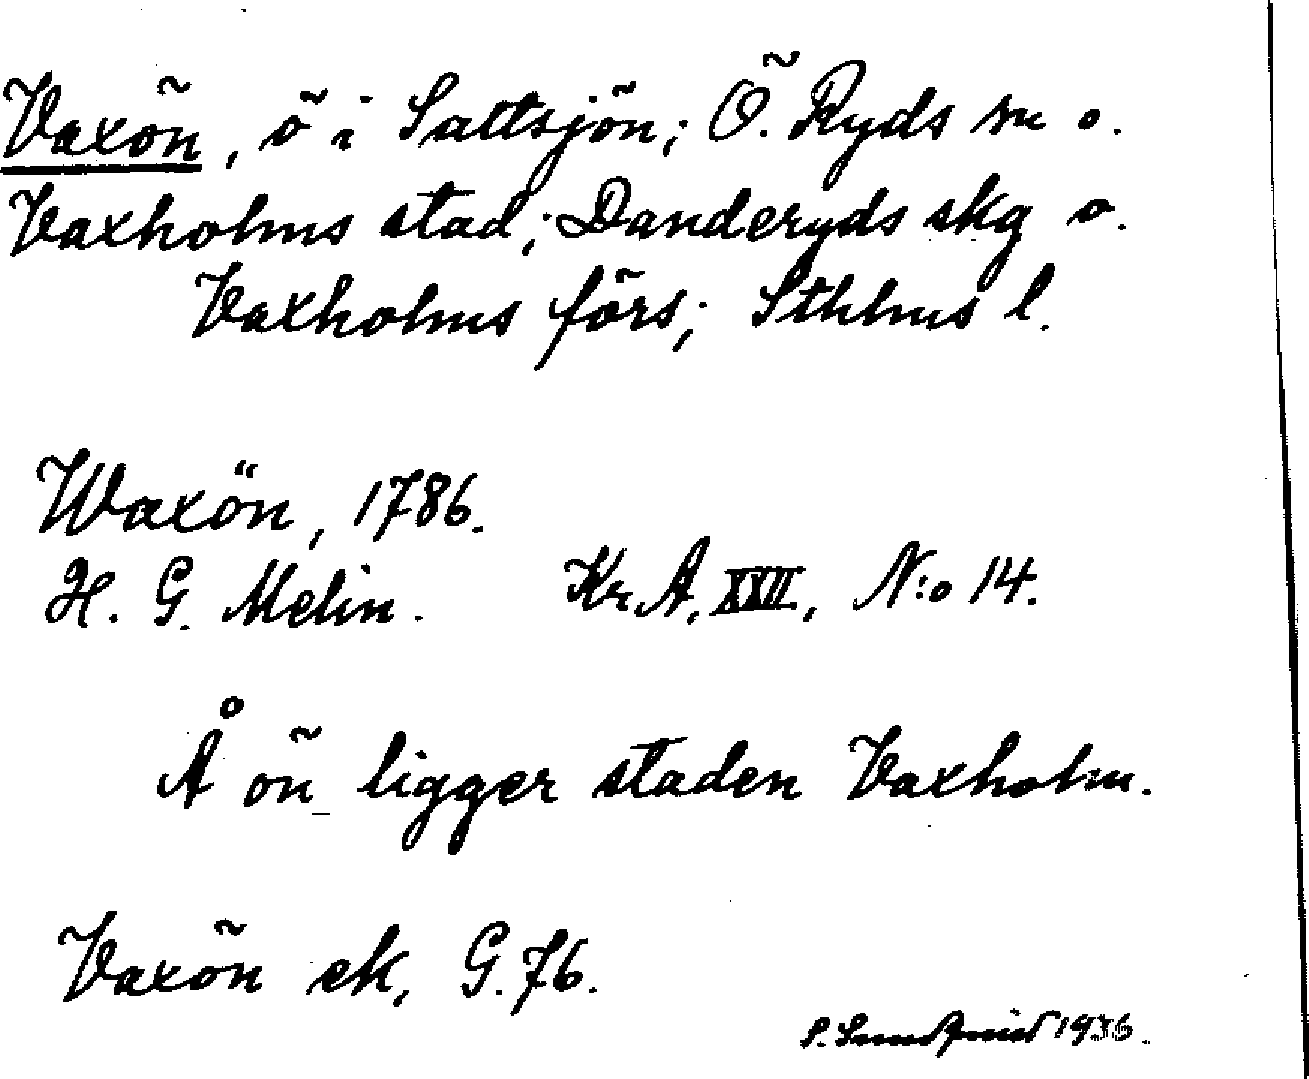 Vaxön, ö i Saltsjön; Ö. Ryds sn o.
Vaxholms stad; Danderyds skg o.
Vaxholms förs; Sthlms l.
Waxön, 1786.
H. G. Melin. Kr A, XXII, N:o 14.
Å ön ligger staden Vaxholm.
Vaxön ek, G. 76.
S. Sundqvist 1936.